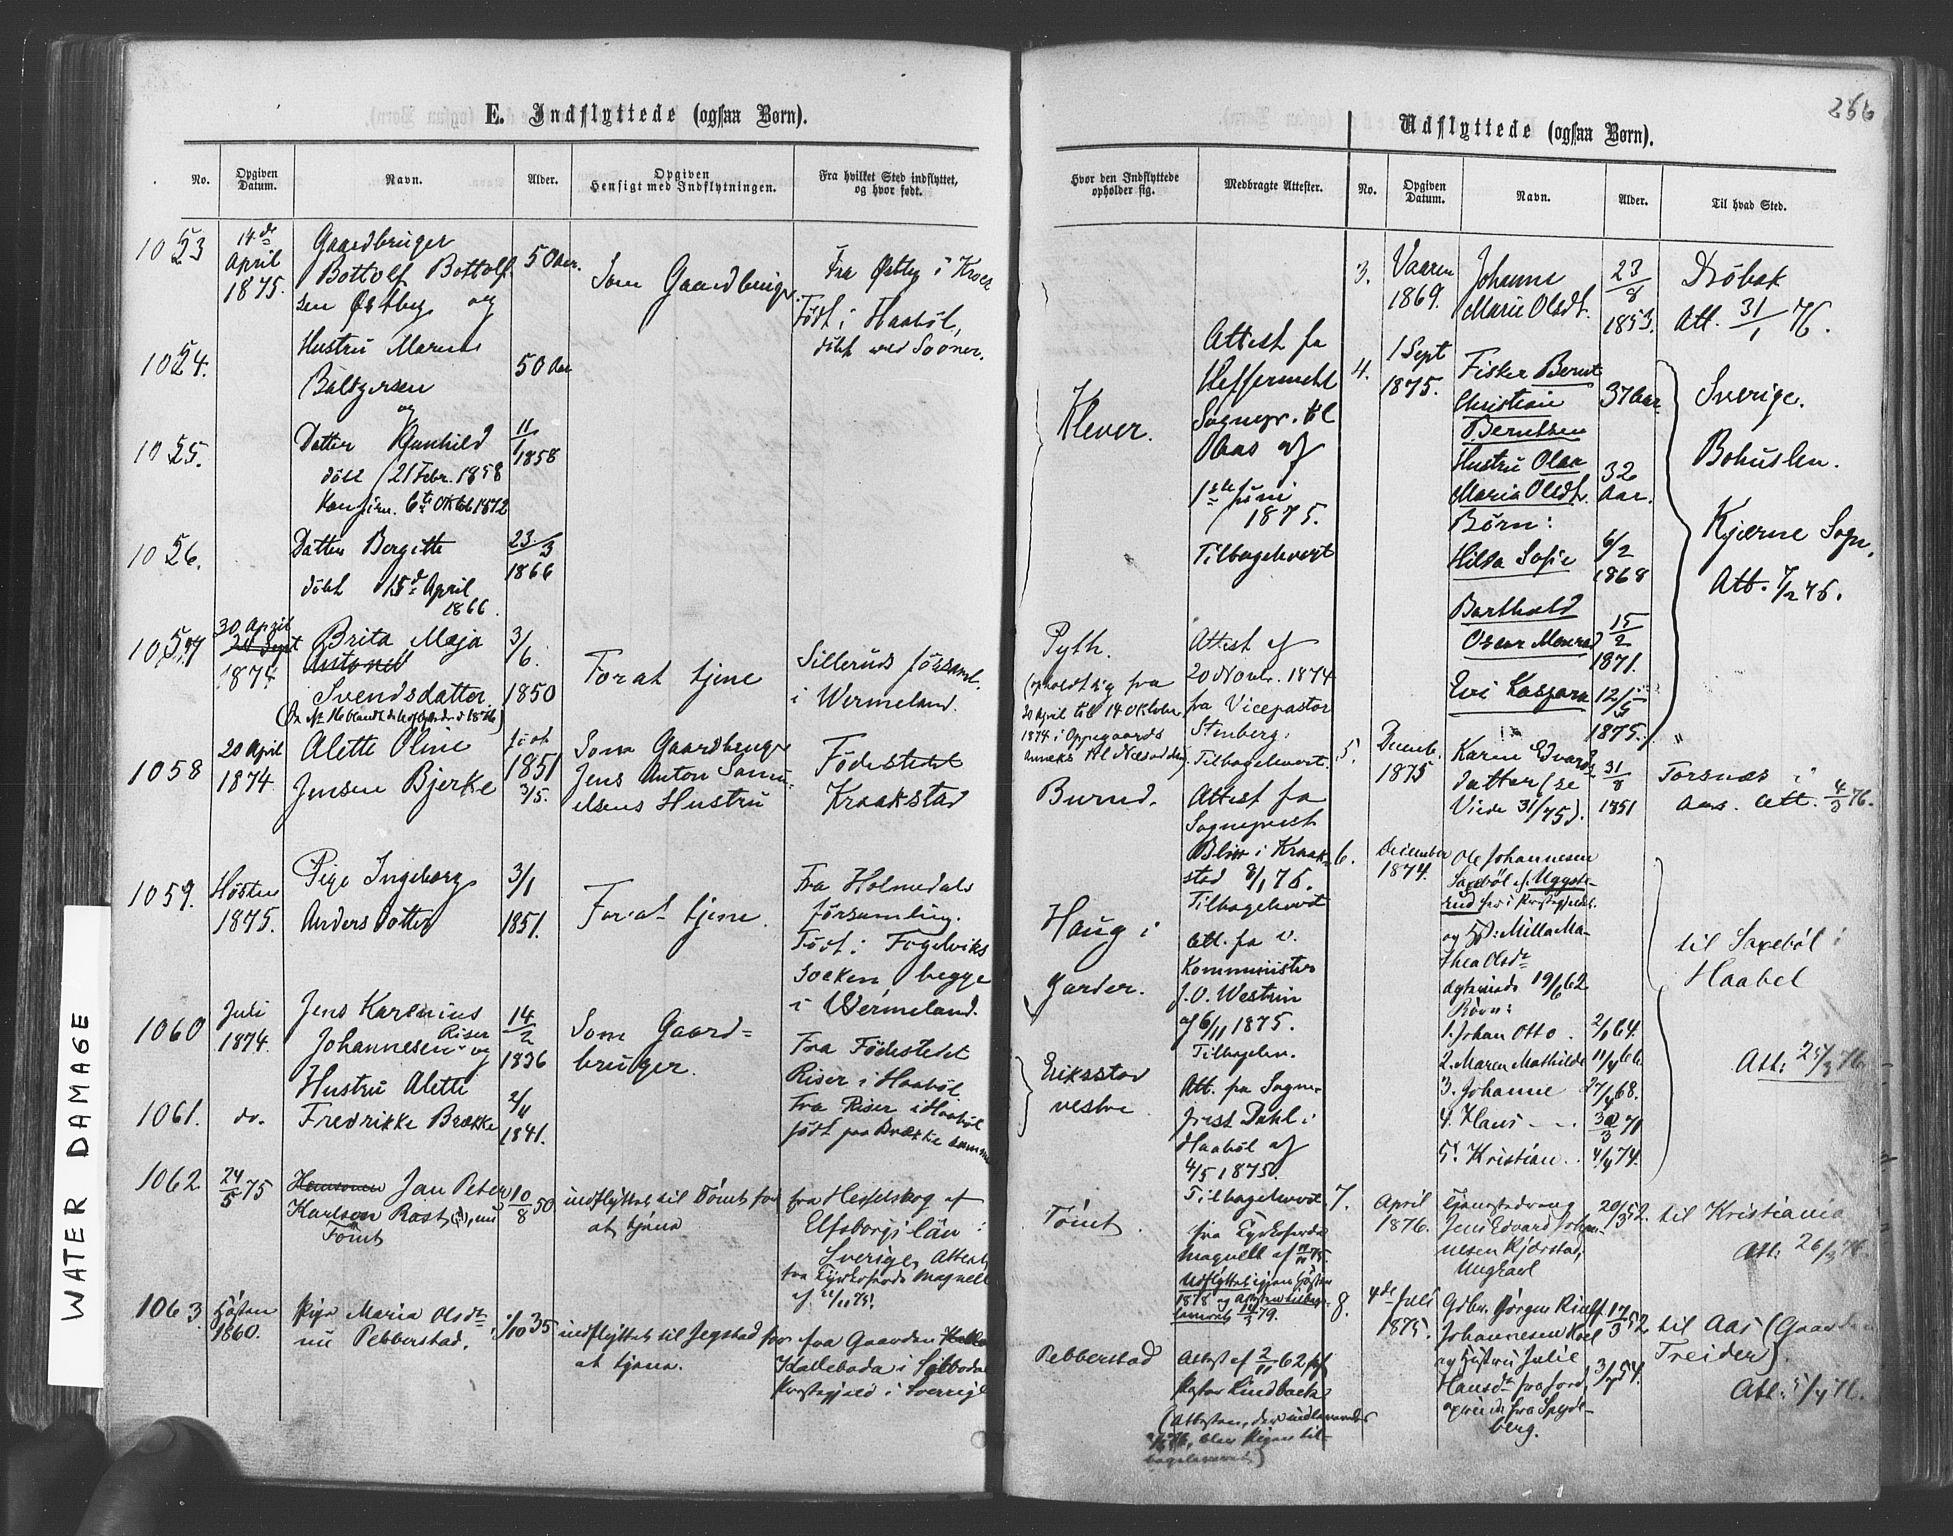 E. Indflyttede (ogsaa Børn).
No.
Opgiven
Datum.
Navn.
Alder.
Opgiven
Hensigt med Indflytningen.
Fra hvilket Sted indflyttet,
og hvor født.
1053
14de
April
1875.
Gaardbruger
Bottolf Bottolf
sen Østby og
50 Aar.
Som Gaardbruger
Fra Østby i Kroer
Født i Haabøl,
døbt ved Sooner.
1054.
Hustru Maren
Baltzersen
og
50 Aar
1055.
Datter Gunhild
døbt 21 Febr. 1858
Konfirm. 6te Oktob 1872
11/1
1858
1056.
Datter Bergitte
døbt 15de April
1866.
23/3
1866
1057
30 April
1874.
Brita Maja
Svendsdatter.
3/6.
1850
For at tjene
Silleruds førsaml.
i Wermeland.
1058
20 April
1874
Alette Oline
Jensen Bjerke
født
1851
3/5.
Som Gaardbruger
Jens Anton Samu-
elsens Hustru
Fødestedet
Kraakstad
1059.
Høsten
1875.
Pige Ingeborg
Andersdotter
3/1
1851.
For at tjene.
Fra Holmedals
församling.
Født i Fogelviks
Socken begge
i Wermeland.
1060
Juli
1874.
Jens Karenius
Riser
Johannesen og
14/2
1836
Som Gaard-
bruger.
Fra Fødestedet
Riser i Haabøl
1061.
do.
Hustru Alette
Fredrikke Brække
2/4
1841.
Fra Riser i Haabøl
født paa Brække
1062
24/5 75
Jan Peter
Karlson Rast, nu
Tomt
10/8 50
indflyttet til Tømt for
at tjene
fra Hesselskog af
Elfsborgs län i
Sverige, Attest
fra
af 11/11 75.
1063.
Høsten
1860.
Pige Maria Olsdtr
nu Pebberstad.
1/10 35
indflyttet til Jegstad for
at tjene.
fra Gaarden
Kalleboda i Silbodal
Prestegjeld i Sverrige
Hvor den Indflyttede
opholder sig.
Medbragte Attester.
Klever.
Attest fra
Sognepr. til
Aas af
1ste Juni
1875.
Tilbagelevert
Pyth.
(opholdt sig fra
20 April til 14 Oktober
1874 i Oppegaards
Anneks til Næsodden)
Attest af
20 Novbr. 1874
fra Vicepastor
Stenberg.
Tilbagelevert.
Burud.
Attest fra
Sogneprest
Blix i Kraak-
stad 8/1 76.
Tilbagelevert
Haug i
Garder.
Att. fra v.
Komminister
J. O. Westrin
af 6/11 1875.
Tilbagelev.
Eriksstad
vestre
Att. fra Sogne-
prest Dahl i
Haabøl af
4/5 1875.
Tilbagelevert
Tømt.
fra
Magnell af 11/11 75.
Udflyttet igjen Høsten
1878 og Attesten tilbage-
leveret 14/5 79.
Pebberstad
Attest af 2/11 62 af
Pastor Lindbæck
(Attesten, der indleveredes
blev Pigen til-
bageleveret.)
256
Udflyttede (ogsaa Børn).
No.
Opgiven
Datum.
Navn.
Alder.
Til hvad Sted.
3.
Vaaren
1869.
Johanne
Marie Olsdt.
23/8
1853.
Drøbak
Att. 31/1 76.
4.
1 Sept
1875.
Fisker Bernt
Christian
Berntsen
37 Aar
Hustru Olea
Maria Olsdtr
32
Aar.
Børn:
Hilda Sofie
6/2
1868
Barthold
Oscar Monrad
15/2
1871.
Evi Kaspara
12/5
1875.
Sverige.
Bohuslen.
Kjerne Sogn.
Att. 7/2 76.
5.
Decemb.
1875
Karen Edvards-
datter (se
Viede 31/75).
31/8
1851
Torsnæs i
Aas. Att. 4/3 76.
6.
December
1874.
Ole Johannesen
Saxebøl af Uggste-
rud her i Prestegjeldet.
og H: Milla Ma-
thea Olsdtr
ægteviede 19/6 62
Børn:
1. Johan Otto. 2/1 64.
2. Maren Mathilde 11/4 66.
3. Johanne 27/4 68.
4. Hans 30/3 71
5. Kristian. 4/4 74.
til Saxebøl i
Haabel
Att: 25/3 76.
7.
April
1876.
Tjenestedreng
Jens Edvard Johan-
nesen Kjærstad,
Ungkarl
20/3 52.
til Kristiania
Att: 26/3 76.
8.
4de Juli
1875.
Gdbr. Jørgen Rielf
Johannesen Kael
17/3 52.
og Hustru Julie
Hansdtr fra Jord,
fra Spyde-
berg.
til Aas (Gaarden
Treider).
Att: 5/4 76.
WATER DAMAGE